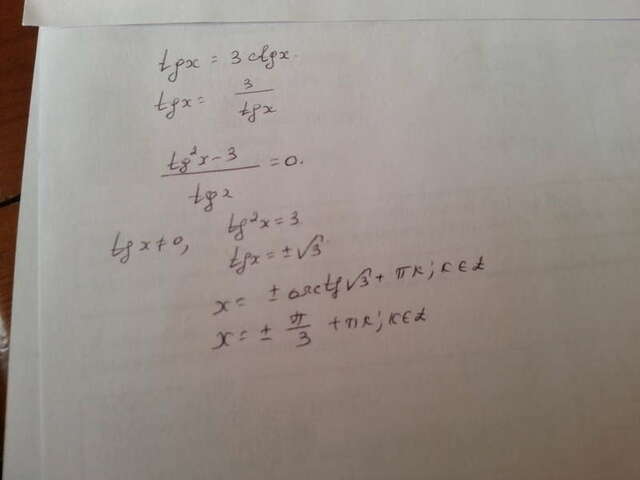 tgx = 3 ctgx.
tgx = 3/tgx
(tg²x - 3)/tgx = 0.
tgx ≠ 0, tg²x = 3
tgx = ±√3
x = ± arctg√3 + πk; k∈Z
x = ± π/3 + πk; k∈Z